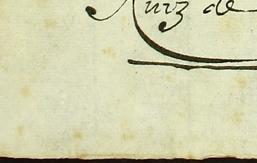 Ruiz de